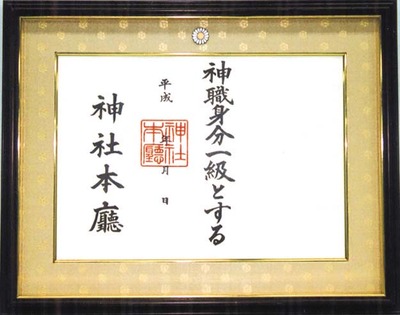 神職身分一級とする
平成 年 月 日
神社本廳
神社
本廳